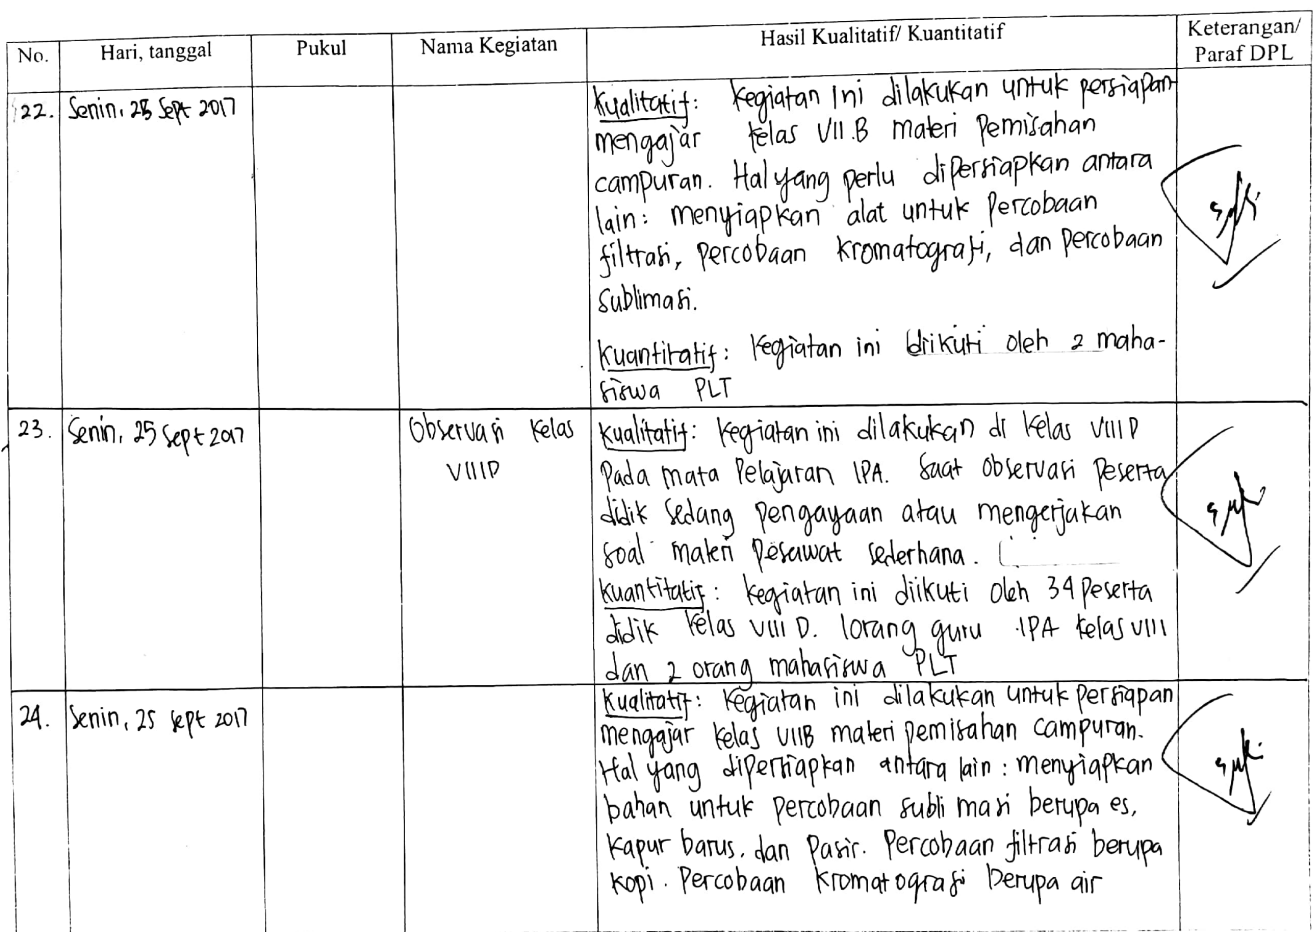 No. Hari, tanggal Pukul Nama Kegiatan Hasil Kualitatif/ Kuantitatif Keterangan/
Paraf DPL
22. Senin, 25 Sept 2017
Kualitatif: Kegiatan ini dilakukan untuk persiapan
mengajar kelas VII.B materi Pemisahan
campuran. Hal yang perlu dipersiapkan antara
lain: menyiapkan alat untuk Percobaan
filtrasi, Percobaan kromatografi, dan Percobaan
Sublimasi.
Kuantitatif: Kegiatan ini diikuti oleh 2 maha-
siswa PLT
23. Senin, 25 Sept 2017 Observasi Kelas
VIIID
Kualitatif: Kegiatan ini dilakukan di Kelas VIII D
Pada mata Pelajaran IPA. Saat Observasi Peserta
didik sedang pengayaan atau mengerjakan
soal materi Pesawat sederhana.
Kuantitatif: Kegiatan ini diikuti Oleh 34 Peserta
didik Kelas VIII D. 1orang guru IPA kelas VIII
dan 2 orang mahasiswa PLT
24. Senin, 25 Sept 2017
Kualitatif: Kegiatan ini dilakukan untuk persiapan
mengajar kelas VIIB materi pemisahan campuran.
Hal yang dipersiapkan antara lain: menyiapkan
bahan untuk percobaan sublimasi berupa es,
kapur barus, dan Pasir. Percobaan filtrasi berupa
kopi. Percobaan kromatografi berupa air